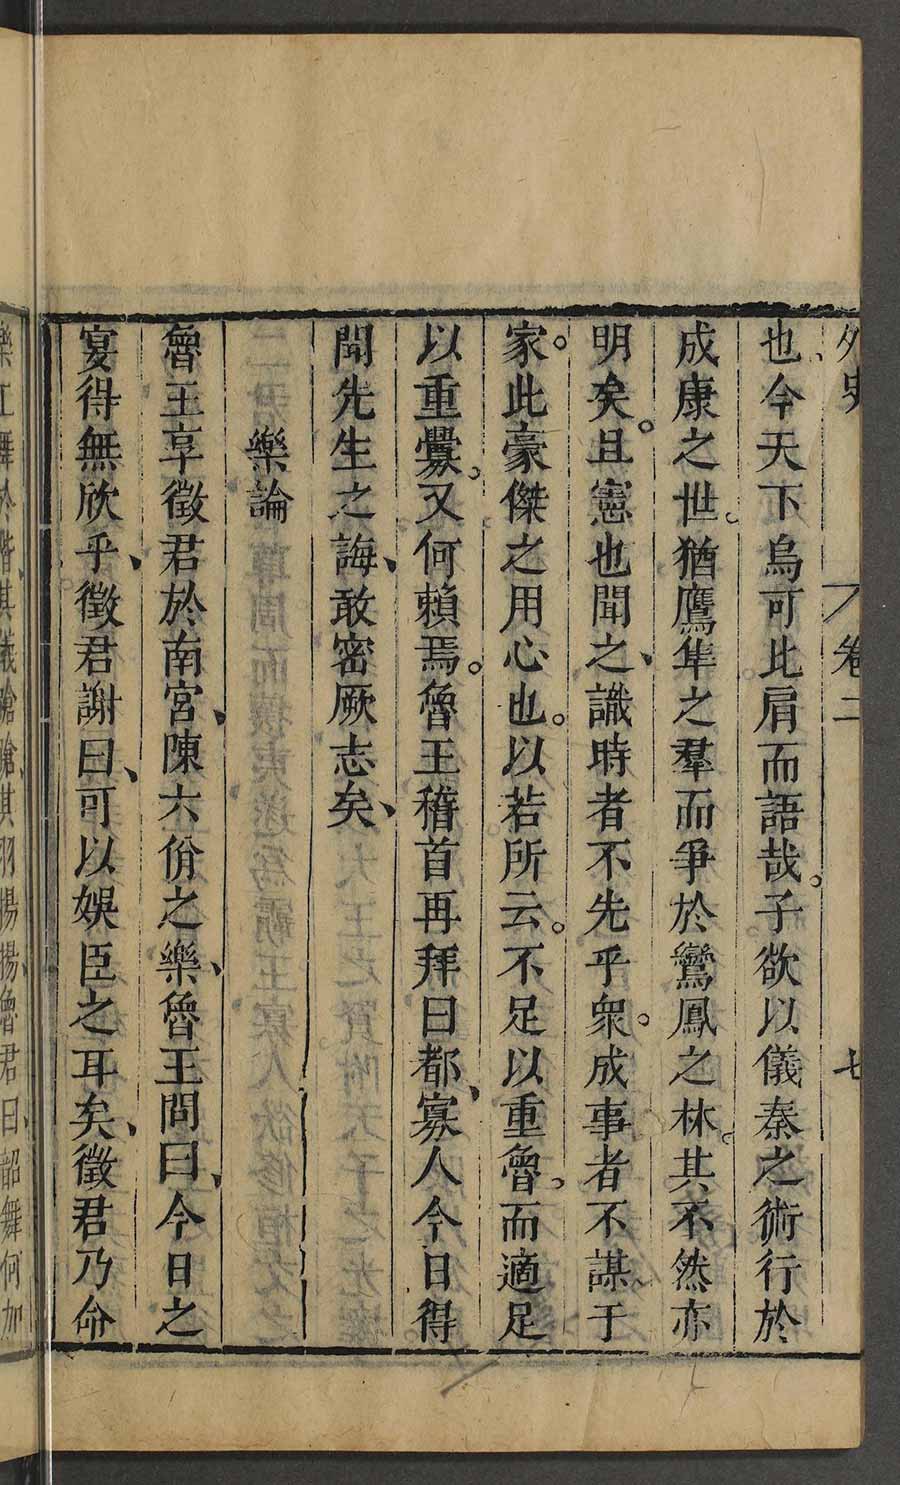 外史 卷二 七
也、今天下烏可比肩而語哉。子欲以儀秦之術行於
成康之世。猶鷹隼之羣而爭於鸞鳳之林。其不然亦
明矣。且憲也聞之、識時者不先乎衆。成事者不謀于
家。此豪傑之用心也。以若所云。不足以重魯。而適足
以重釁。又何賴焉。魯王稽首再拜曰都、寡人今日得
聞先生之誨、敢密厥志矣、
樂論
魯王享徵君於南宮、陳六佾之樂、魯王問曰、今日之
宴得無欣乎、徵君謝曰、可以娛臣之耳矣、徵君乃命